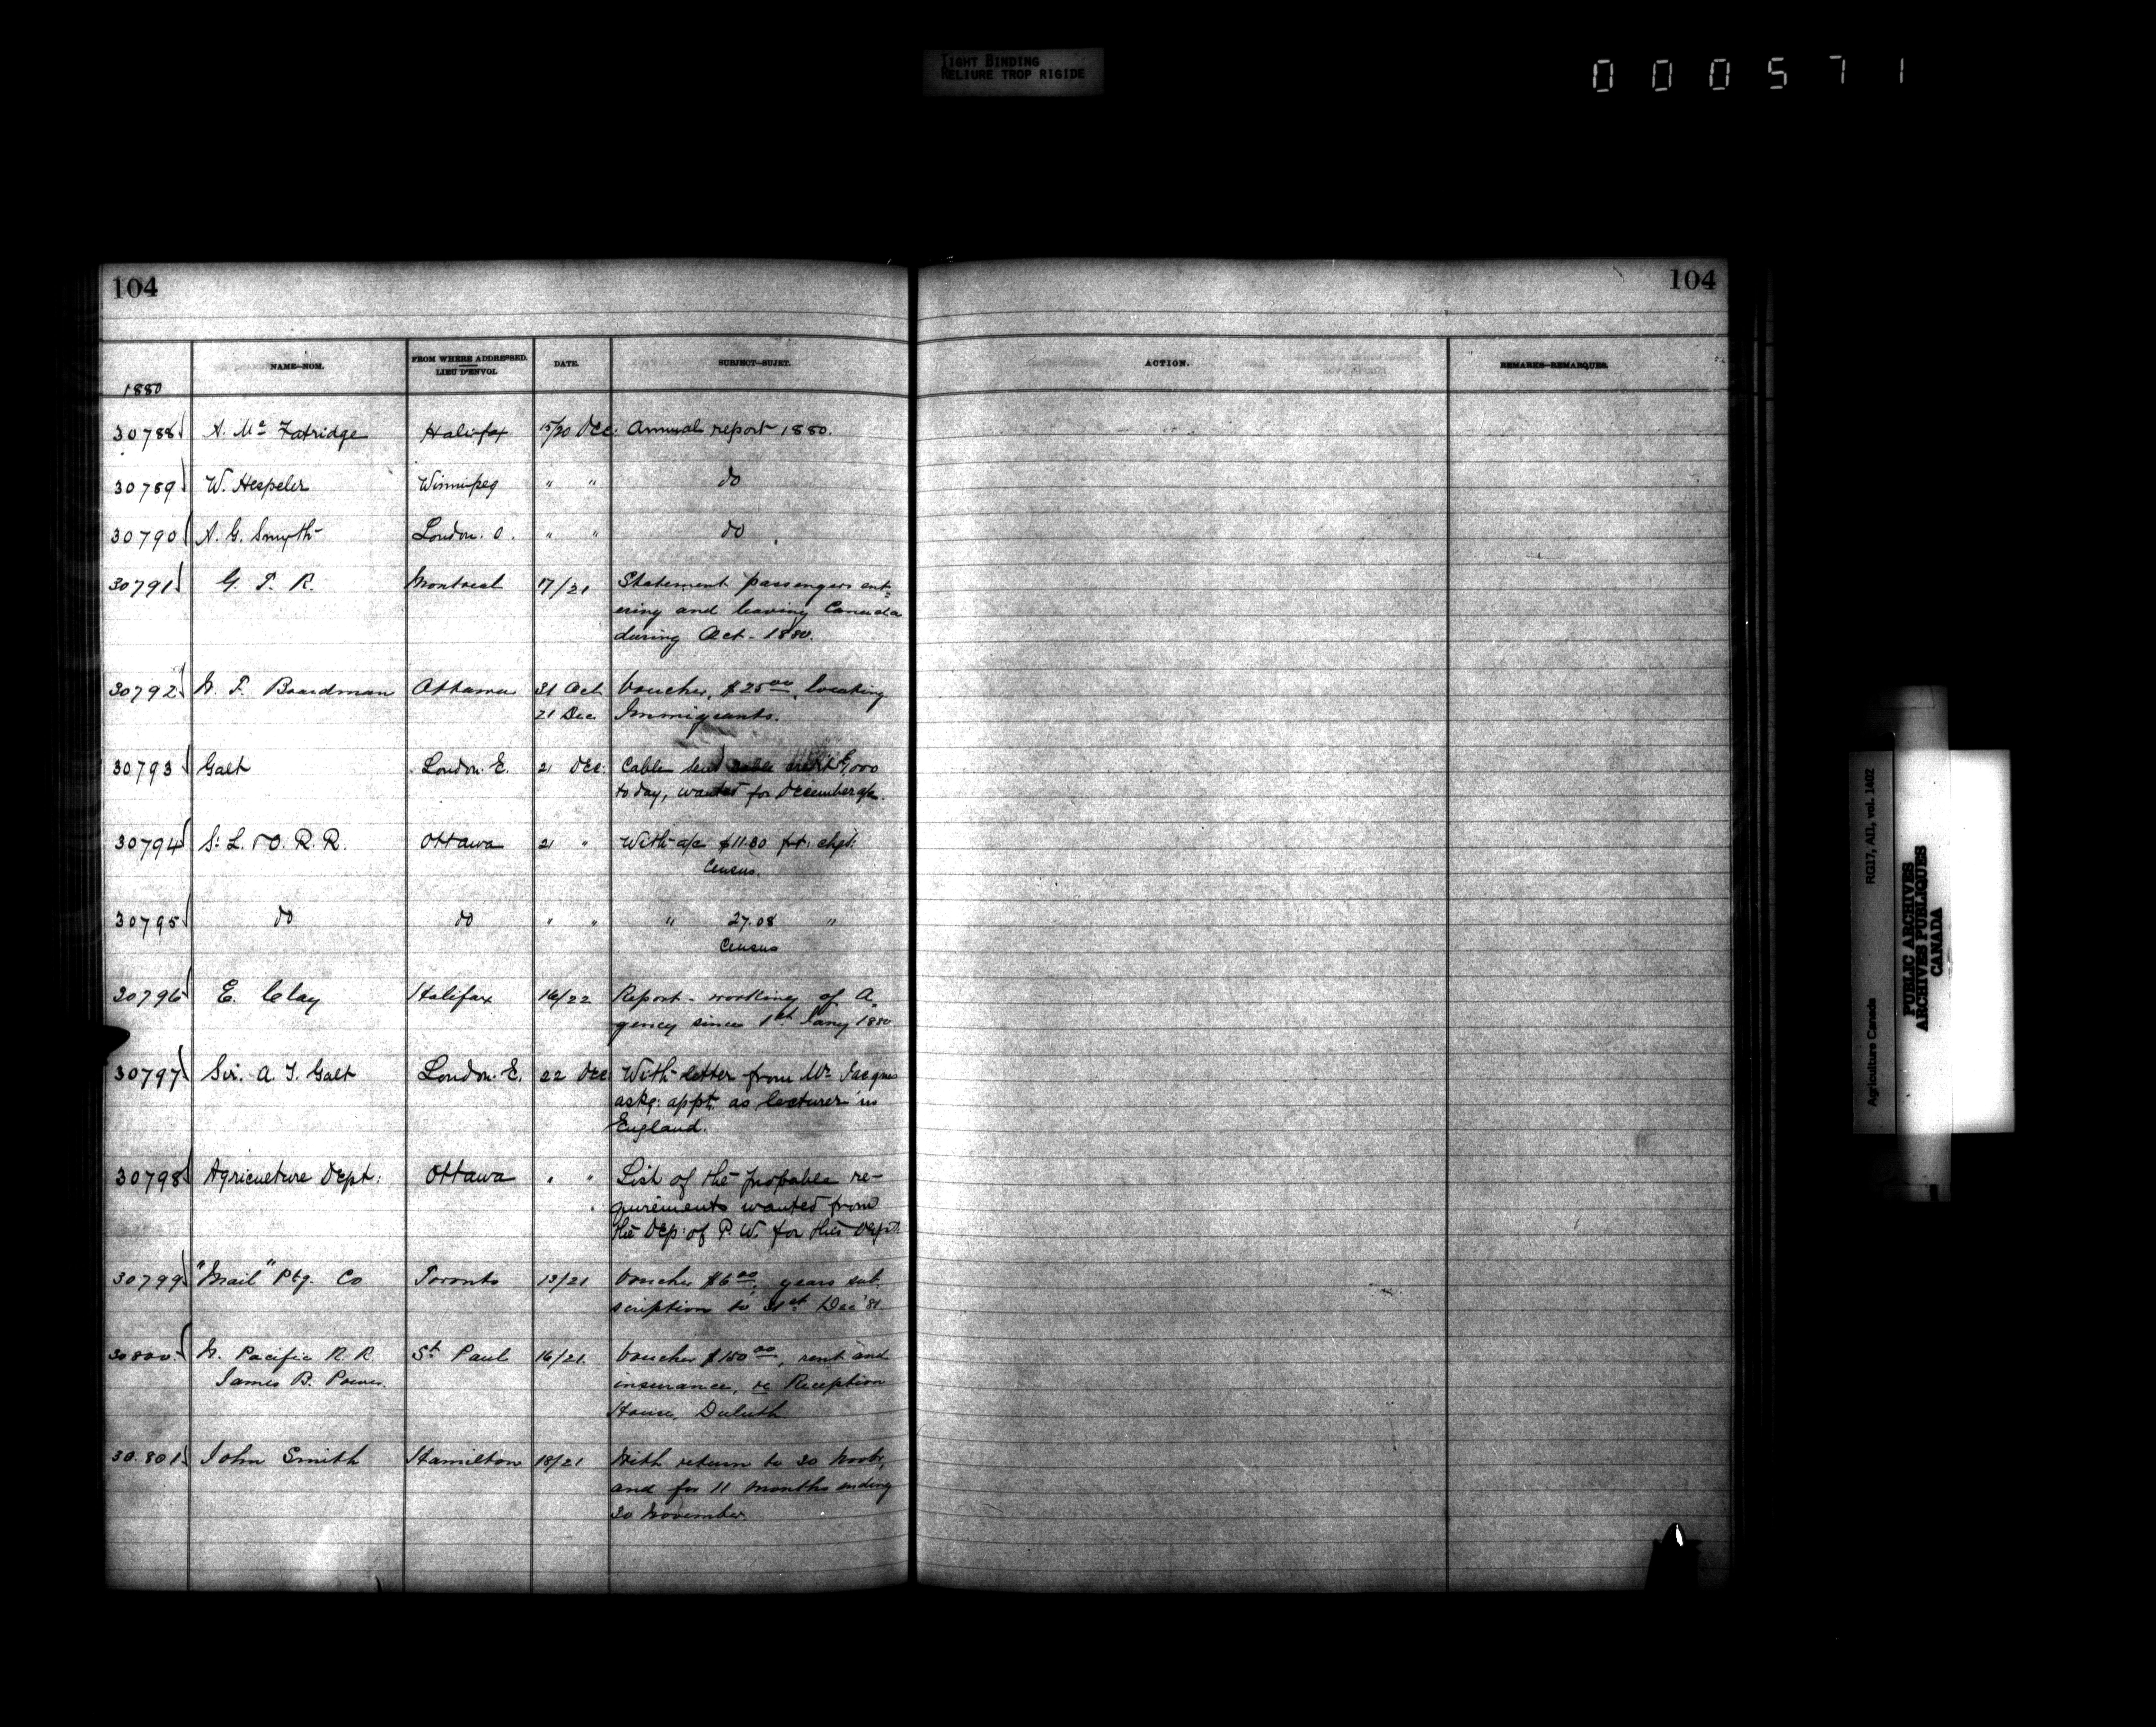 TIGHT BINDING
RELIURE TROP RIGIDE
000571
104
104
NAME—NOM.
FROM WHERE ADDRESSED.
LIEU D'ENVOI.
DATE.
SUBJECT—SUJET.
ACTION.
REMARKS—REMARQUES.
1880
30788 A. Mc Fatridge Halifax 15/20 Dec: Annual report 1880.
30789 W. Hespeler Winnipeg " " do
30790 A. G. Smyth London. O. " " do
30791 G. T. R. Montreal 17/21 Statement passengers ent-
ering and leaving Canada
during Oct- 1880.
30792 W. F. Boardman Ottawa 31 Oct Voucher, $25.00, locating
21 Dec Immigrants.
30793 Galt London. E. 21 Dec: Cable send
today, wanted for December a/c.
30794 St. L. & O. R. R. Ottawa 21 " With a/c $11.80 frt: chgs:
Census.
30795 do do " " " 27.08 "
Census
30796 E. Clay Halifax 16/22 Report- working of A-
gency since 1st. Jany 1880
30797 Sir. A. T. Galt London. E. 22 Dec With letter from Mr. Jacques
askg: appt. as lecturer in
England.
30798 Agriculture Dept: Ottawa " " List of the probable re-
" quirements wanted from
the Dep: of P. W. for this Dept:
30799 "Mail" Ptg. Co Toronto 13/21 Voucher $6.00, years sub-
scription to 31st Dec '81.
30800 N. Pacific R. R St. Paul 16/21. Voucher $150.00, rent and
James B. Power. insurance, re Reception
House, Duluth.
30.801 John Smith Hamilton 18/21 With return to 30 Novbr,
and for 11 months ending
30 November.
Agriculture Canada RG17, AII, vol. 1402
PUBLIC ARCHIVES
ARCHIVES PUBLIQUES
CANADA